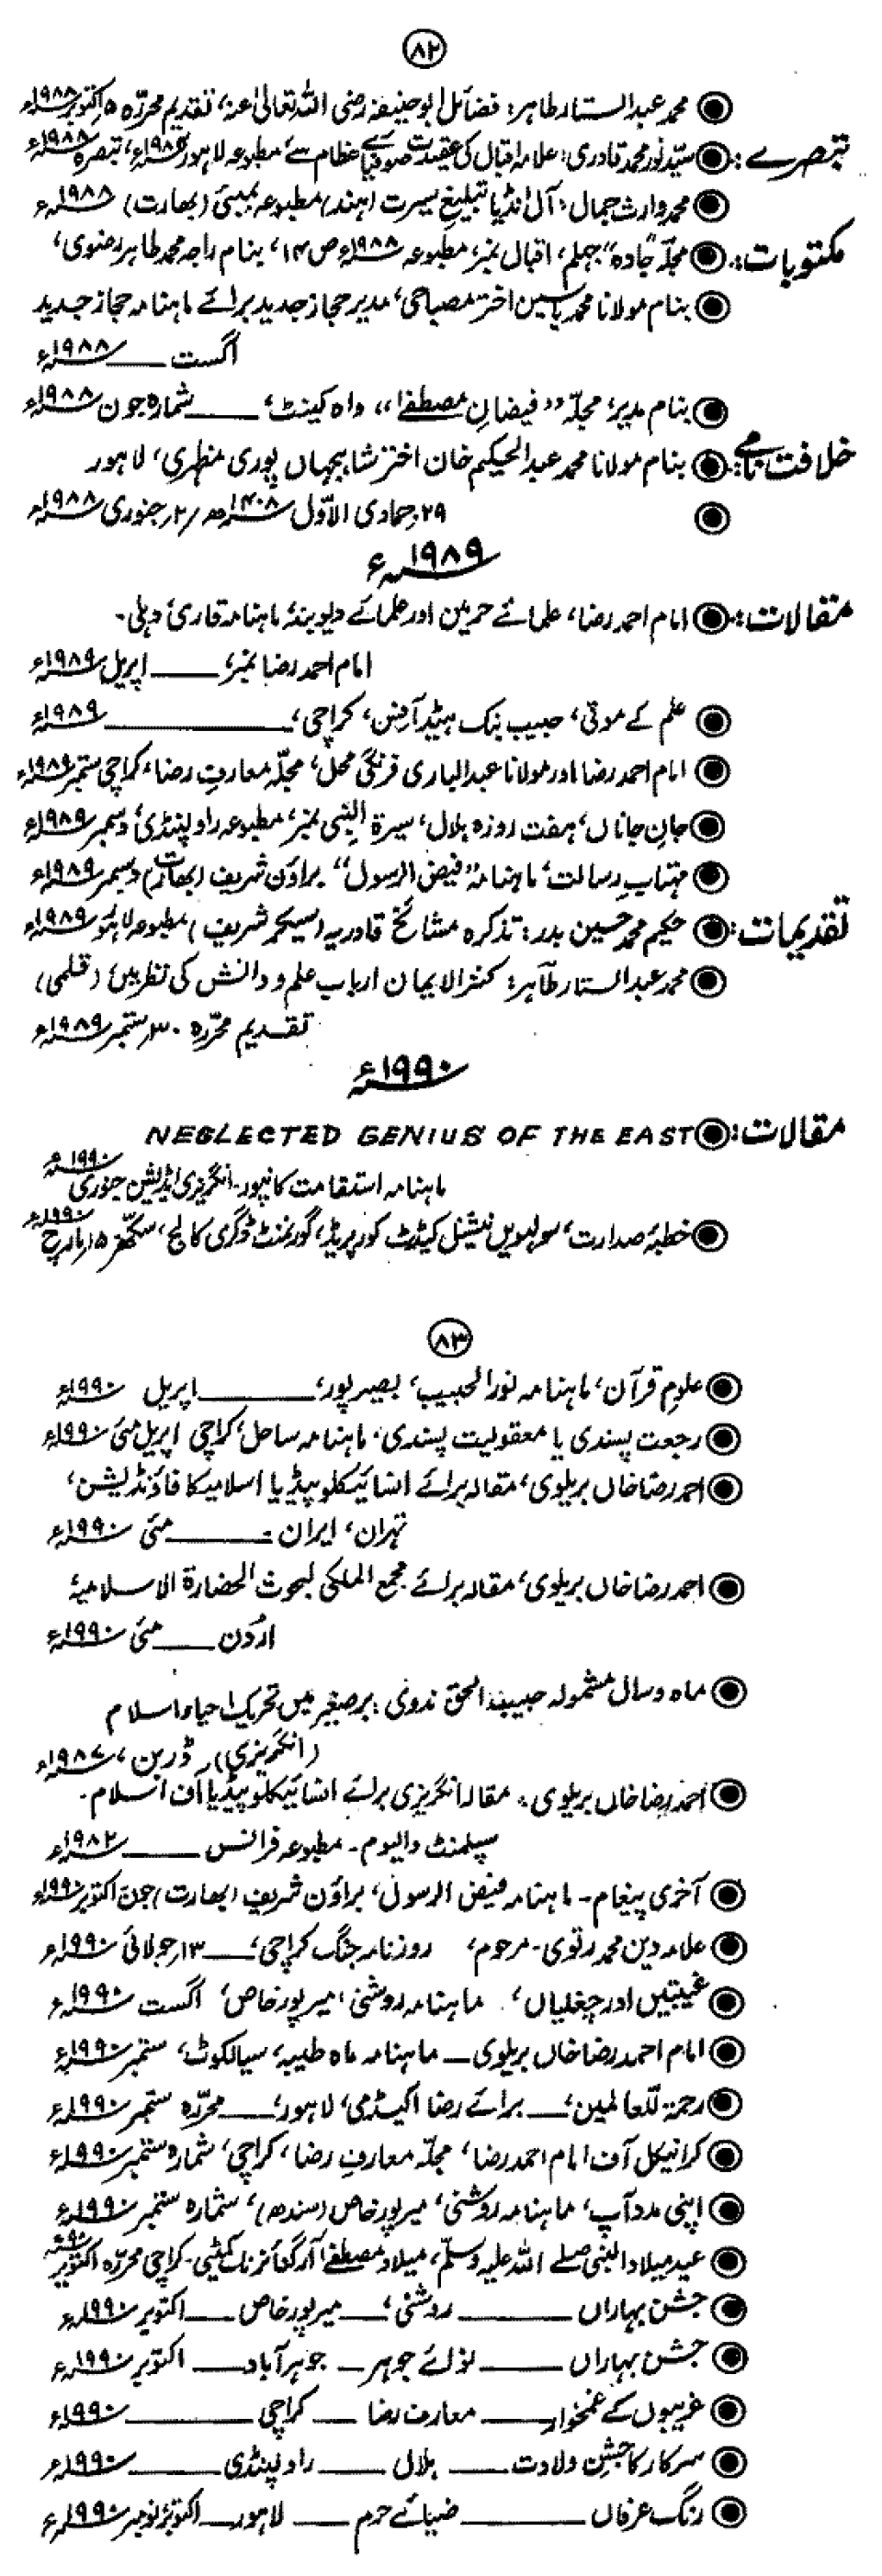 ۸۲
◉ محمد عبدالستار طاہر: فضائل ابو حنیفہ رضی اللہ تعالیٰ عنہ، تقدیم محررہ ۵ اکتوبر ۱۹۸۸ء
تبصرے: ◉ سید نور محمد قادری: علامہ اقبال کی عقیدت صوفیائے عظام سے، مطبوعہ لاہور، تبصرہ ۱۹۸۸ء
◉ محمد وارث جمال: آل انڈیا تبلیغ سیرت (ہند) مطبوعہ بمبئی (بھارت) ۱۹۸۸ء
مکتوبات: ◉ مجلہ "جادہ" جہلم، اقبال نمبر، مطبوعہ ۱۹۸۸ء ص ۱۴، بنام راجہ محمد طاہر رضوی،
◉ بنام مولانا محمد یاسین اختر مصباحی، مدیر حجاز جدید برائے ماہنامہ حجاز جدید
اگست ــــ ۱۹۸۸ء
◉ بنام مدیر، مجلہ "فیضانِ مصطفےٰ" واہ کینٹ، ــــ شمارہ جون ۱۹۸۸ء
خلافت نامے: ◉ بنام مولانا محمد عبدالحکیم خان اختر شاہجہاں پوری مظہری، لاہور
◉ ۲۹؍جمادی الاوّل ۱۴۰۸ھ/۲؍جنوری ۱۹۸۸ء
۱۹۸۹ء
مقالات: ◉ امام احمد رضا، علمائے حرمین اور علمائے دیوبند، ماہنامہ قاری، دہلی۔
امام احمد رضا نمبر، ــــ اپریل ۱۹۸۹ء
◉ علم کے موتی، حبیب بنک ہیڈ آفس، کراچی، ــــ ۱۹۸۹ء
◉ امام احمد رضا اور مولانا عبدالباری فرنگی محل، مجلہ معارف رضا، کراچی ستمبر ۱۹۸۹ء
◉ جانِ جاناں، ہفت روزہ ہلال، سیرۃ النبی نمبر، مطبوعہ راولپنڈی، دسمبر ۱۹۸۹ء
◉ مہتابِ رسالت، ماہنامہ "فیض الرسول" براؤن شریف (بھارت) دسمبر ۱۹۸۹ء
تقدیمات: ◉ حکیم محمد حسین بدر: تذکرہ مشائخ قادریہ ( شریف) مطبوعہ لاہور ۱۹۸۹ء
◉ محمد عبدالستار طاہر: کنزالایمان ارباب علم و دانش کی نظر میں، (قلمی)
تقدیم محررہ ۳۰؍ستمبر ۱۹۸۹ء
۱۹۹۰ء
مقالات: ◉ NEGLECTED GENIUS OF THE EAST
ماہنامہ استقامت کانپور۔ انگریزی ایڈیشن جنوری ۱۹۹۰ء
◉ خطبۂ صدارت، سولہویں نیشنل کیڈٹ کور پریڈ، گورنمنٹ ڈگری کالج، سکھر ۱۵؍مارچ ۱۹۹۰ء
۸۳
◉ علومِ قرآن، ماہنامہ نور الحبیب، بصیرپور، ــــ اپریل ۱۹۹۰ء
◉ رجعت پسندی یا معقولیت پسندی، ماہنامہ ساحل، کراچی اپریل مئی ۱۹۹۰ء
◉ احمد رضا خاں بریلوی، مقالہ برائے انسائیکلوپیڈیا اسلامیکا فاؤنڈیشن،
تہران، ایران ــــ مئی ۱۹۹۰ء
◉ احمد رضا خاں بریلوی، مقالہ برائے مجمع الملکی لبحوث الحضارۃ الاسلامیہ
اردن ــــ مئی ۱۹۹۰ء
◉ ماہ و سال مشمولہ حبیب الحق ندوی: برصغیر میں تحریک احیاء اسلام
(انگریزی)، ڈربن، ۱۹۸۷ء
◉ احمد رضا خاں بریلوی، مقالہ انگریزی برائے انسائیکلوپیڈیا آف اسلام۔
سپلمنٹ والیوم۔ مطبوعہ فرانس ــــ ۱۹۸۲ء
◉ آخری پیغام۔ ماہنامہ فیض الرسول، براؤن شریف (بھارت) جون اکتوبر ۱۹۹۰ء
◉ علامہ دین محمد مرحوم، روزنامہ جنگ کراچی، ــــ ۱۳؍جولائی ۱۹۹۰ء
◉ غیبتیں اور چغلیاں، ماہنامہ روشنی، میرپور خاص، اگست ۱۹۹۰ء
◉ امام احمد رضا خاں بریلوی ــ ماہنامہ ماہ طیبہ، سیالکوٹ، ستمبر ۱۹۹۰ء
◉ رحمۃ للعالمین، ــ برائے رضا اکیڈمی، لاہور، ــــ محررہ ستمبر ۱۹۹۰ء
◉ کرانیکل آف امام احمد رضا، مجلہ معارفِ رضا، کراچی، شمارہ ستمبر ۱۹۹۰ء
◉ اپنی مدد آپ، ماہنامہ روشنی، میرپور خاص (سندھ)، شمارہ ستمبر ۱۹۹۰ء
◉ عید میلاد النبی صلے اللہ علیہ وسلم، میلاد مصطفےٰ آرگنائزنگ کمیٹی۔ کراچی محررہ اکتوبر ۹۰ء
◉ جشنِ بہاراں ــــ روشنی، ــــ میرپور خاص ــــ اکتوبر ۱۹۹۰ء
◉ جشنِ بہاراں ــــ نوائے جوہر ــ جوہر آباد ــــ اکتوبر ۱۹۹۰ء
◉ غریبوں کے غمخوار ــــ معارف رضا ــ کراچی ــــ ۱۹۹۰ء
◉ سرکار کا جشنِ ولادت ــــ ہلال ــــ راولپنڈی ــــ ۱۹۹۰ء
◉ رنگِ عرفاں ــــ ضیائے حرم ــــ لاہور ــ اکتوبر نومبر ۱۹۹۰ء